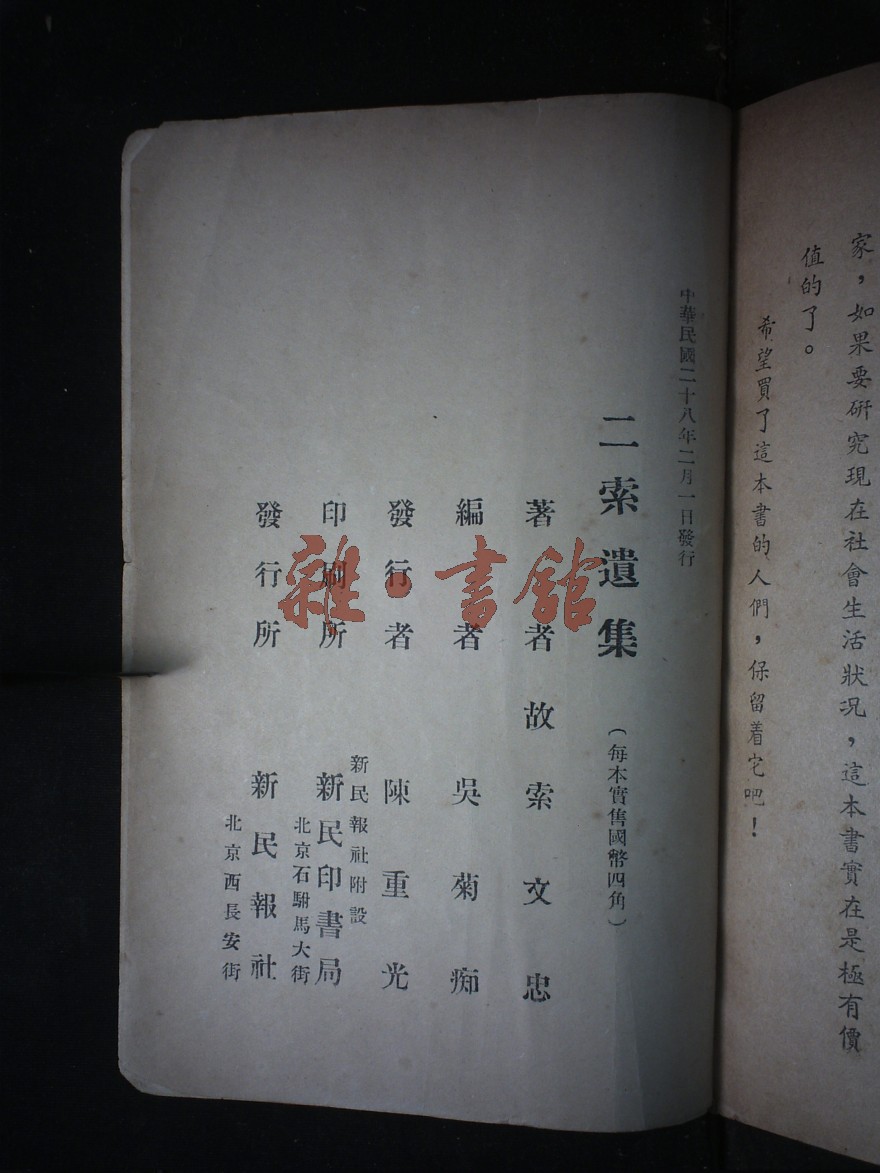 家，如果要研究現在社會生活狀况，這本書實在是極有價
值的了。
希望買了這本書的人們，保留着它吧！
中華民國二十八年二月一日發行
二索遺集（每本實售國幣四角）
著者 故索文忠
編者 吳菊痴
發行者 陳重光
新民報社附設
印刷所 新民印書局
北京石駙馬大街
發行所 新民報社
北京西長安街
雜·書館